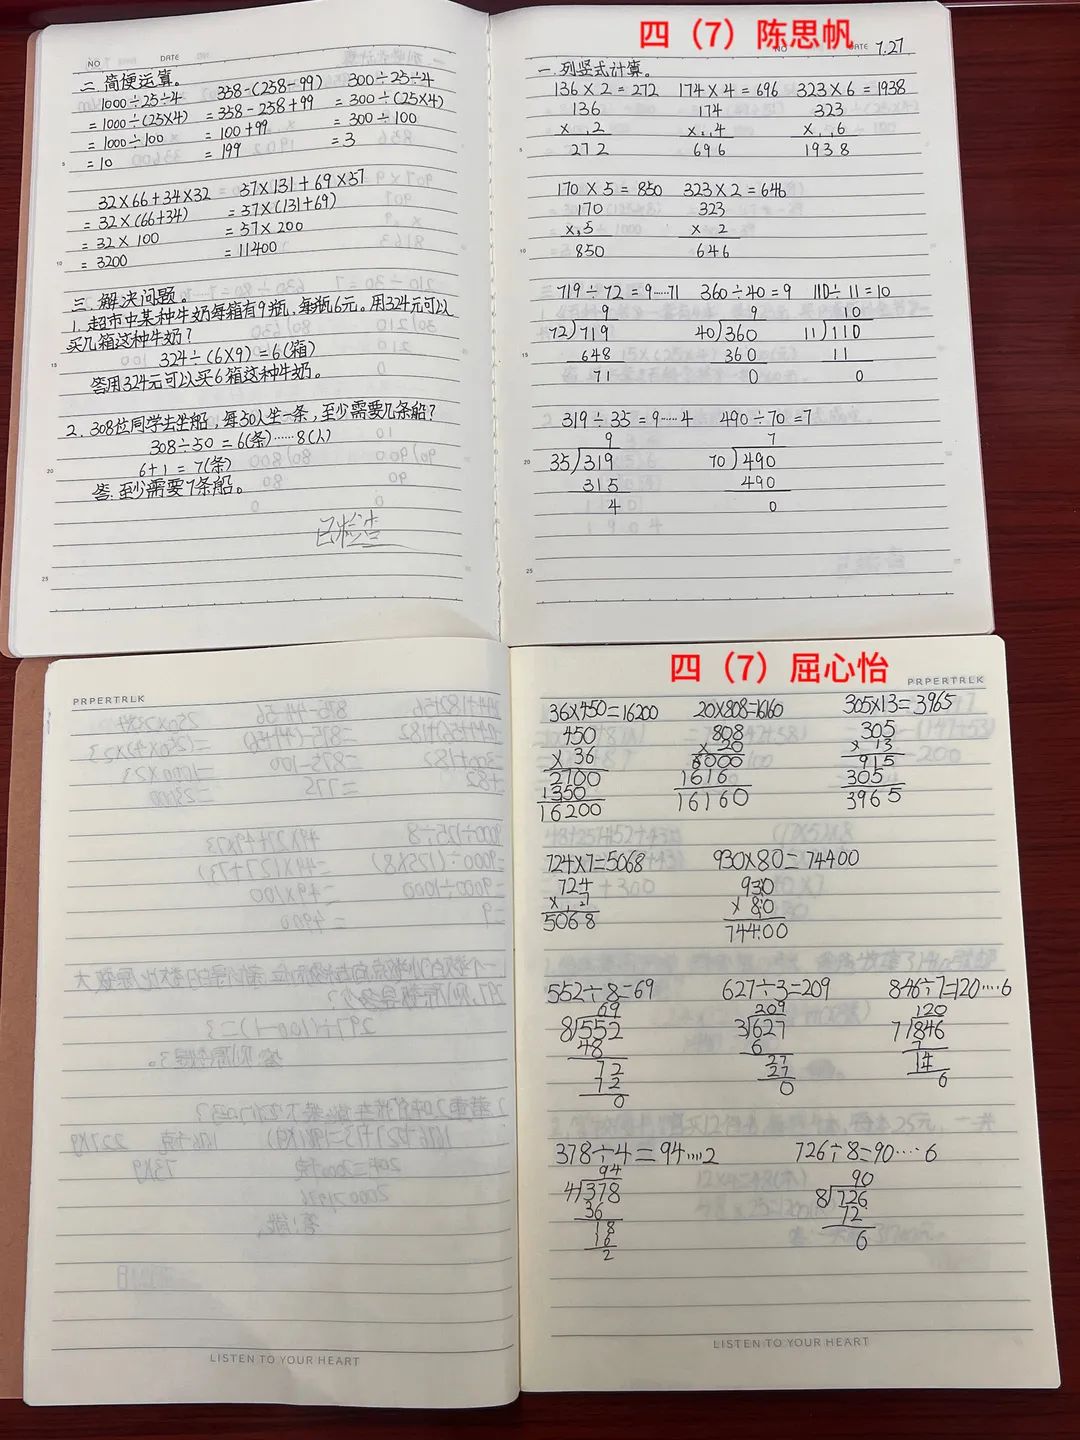 四（7）陈思帆
NO DATE
二.简便运算。
1000÷25÷4 358-(258-99) 300÷25÷4
=1000÷(25×4) =358-258+99 =300÷(25×4)
=1000÷100 =100+99 =300÷100
=10 =199 =3
32×66+34×32 57×131+69×57
=32×(66+34) =57×(131+69)
=32×100 =57×200
=3200 =11400
三.解决问题。
1.超市中某种牛奶每箱有9瓶，每瓶6元。用324元可以
买几箱这种牛奶？
324÷(6×9)=6(箱)
答用324元可以买6箱这种牛奶。
2.308位同学去坐船，每50人坐一条，至少需要几条船？
308÷50=6(条)……8(人)
6+1=7(条)
答.至少需要7条船。
已检查
NO DATE 7.27
一.列竖式计算。
136×2=272 174×4=696 323×6=1938
136 174 323
×2 ×4 ×6
272 696 1938
170×5=850 323×2=646
170 323
×5 ×2
850 646
719÷72=9……71 360÷40=9 110÷11=10
9 9 10
72)719 40)360 11)110
648 360 11
71 0 0
319÷35=9……4 490÷70=7
9 7
35)319 70)490
315 490
4 0
四（7）屈心怡
PRPERTRLK
LISTEN TO YOUR HEART
PRPERTRLK
36×450=16200 20×808=16160 305×13=3965
450 808 305
×36 ×20 ×13
2700 0000 915
1350 1616 305
16200 16160 3965
724×7=5068 930×80=74400
724 930
×7 ×80
5068 74400
552÷8=69 627÷3=209 846÷7=120……6
69 209 120
8)552 3)627 7)846
48 6 7
72 27 14
72 27 14
0 0 6
378÷4=94……2 726÷8=90……6
94 90
4)378 8)726
36 72
18 6
16
2
LISTEN TO YOUR HEART